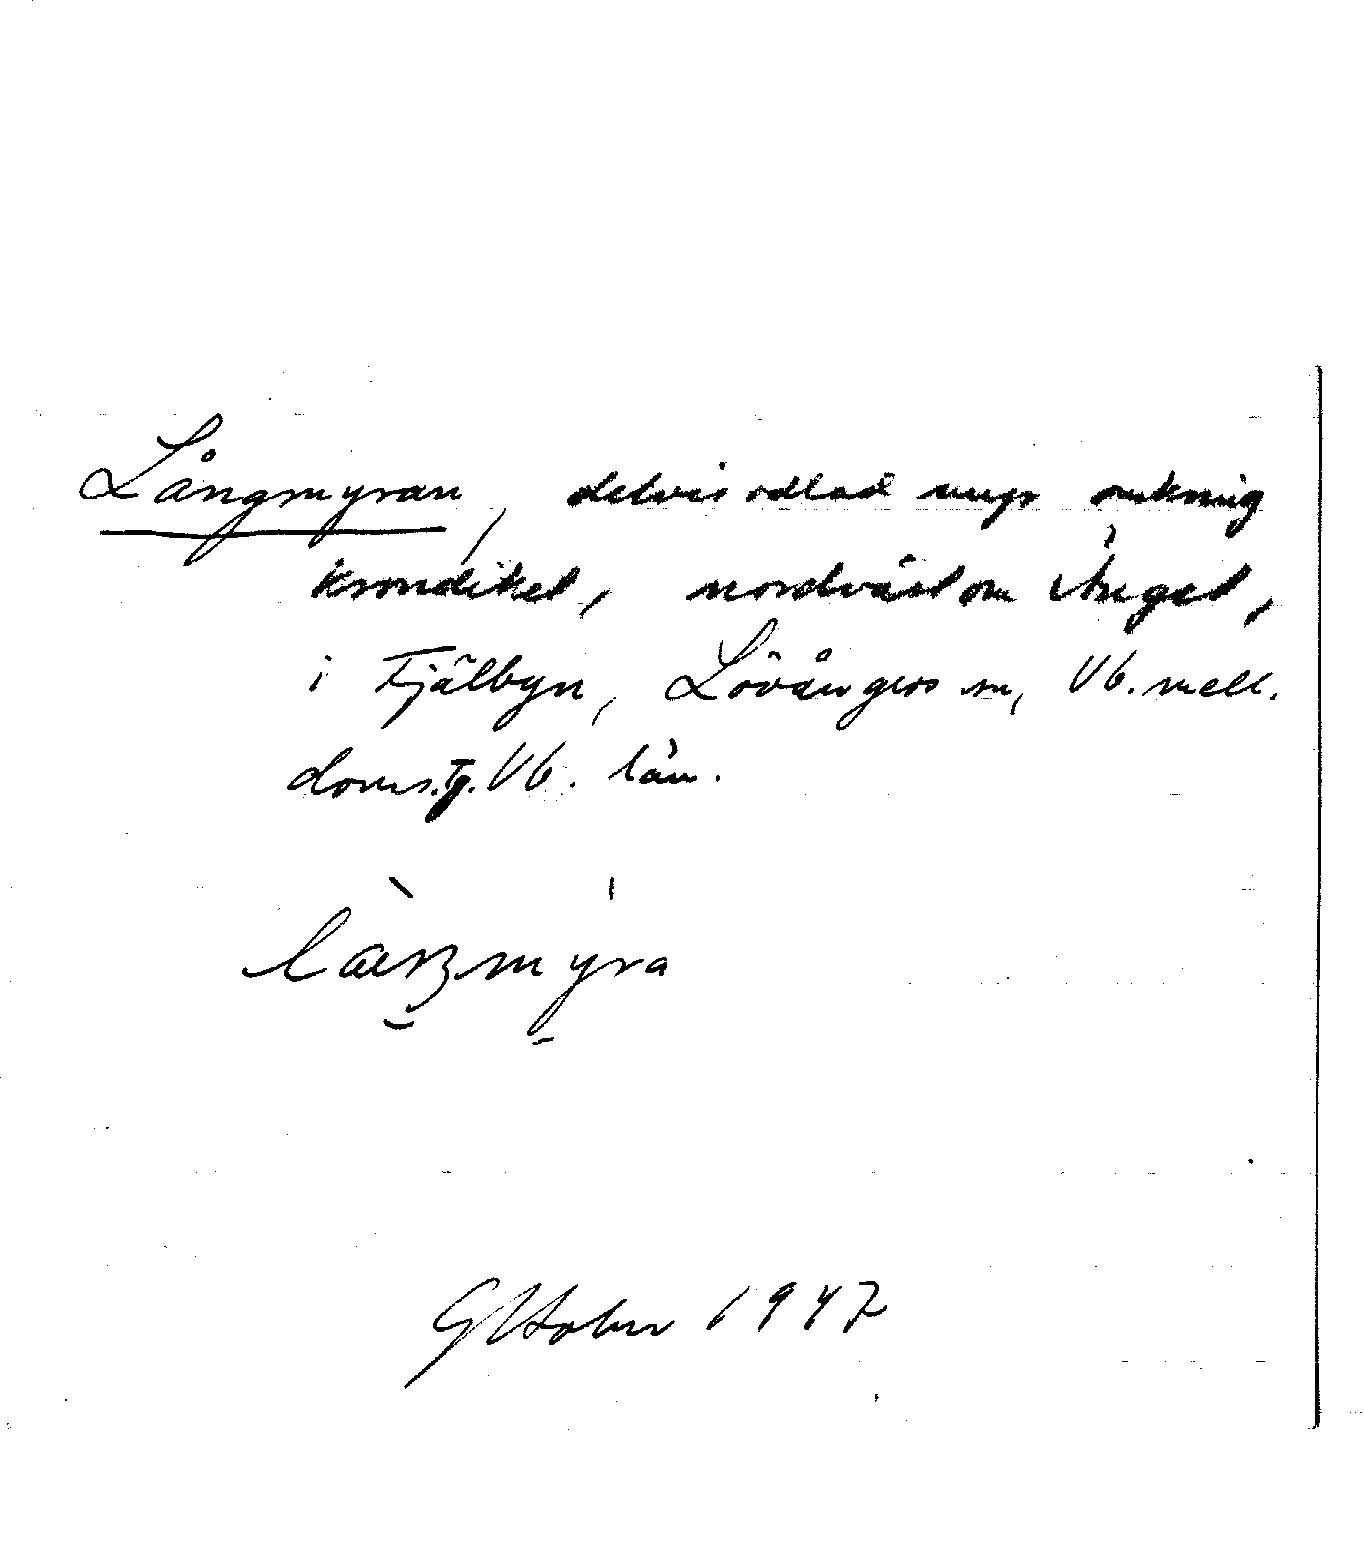 Långmyran, delvis odlad myr omkring
krondiket, nordväst om Änget,
i Fjälbyn, Lövångers sn, Vb. mell.
doms.tg. Vb. län.
G Holm 1947